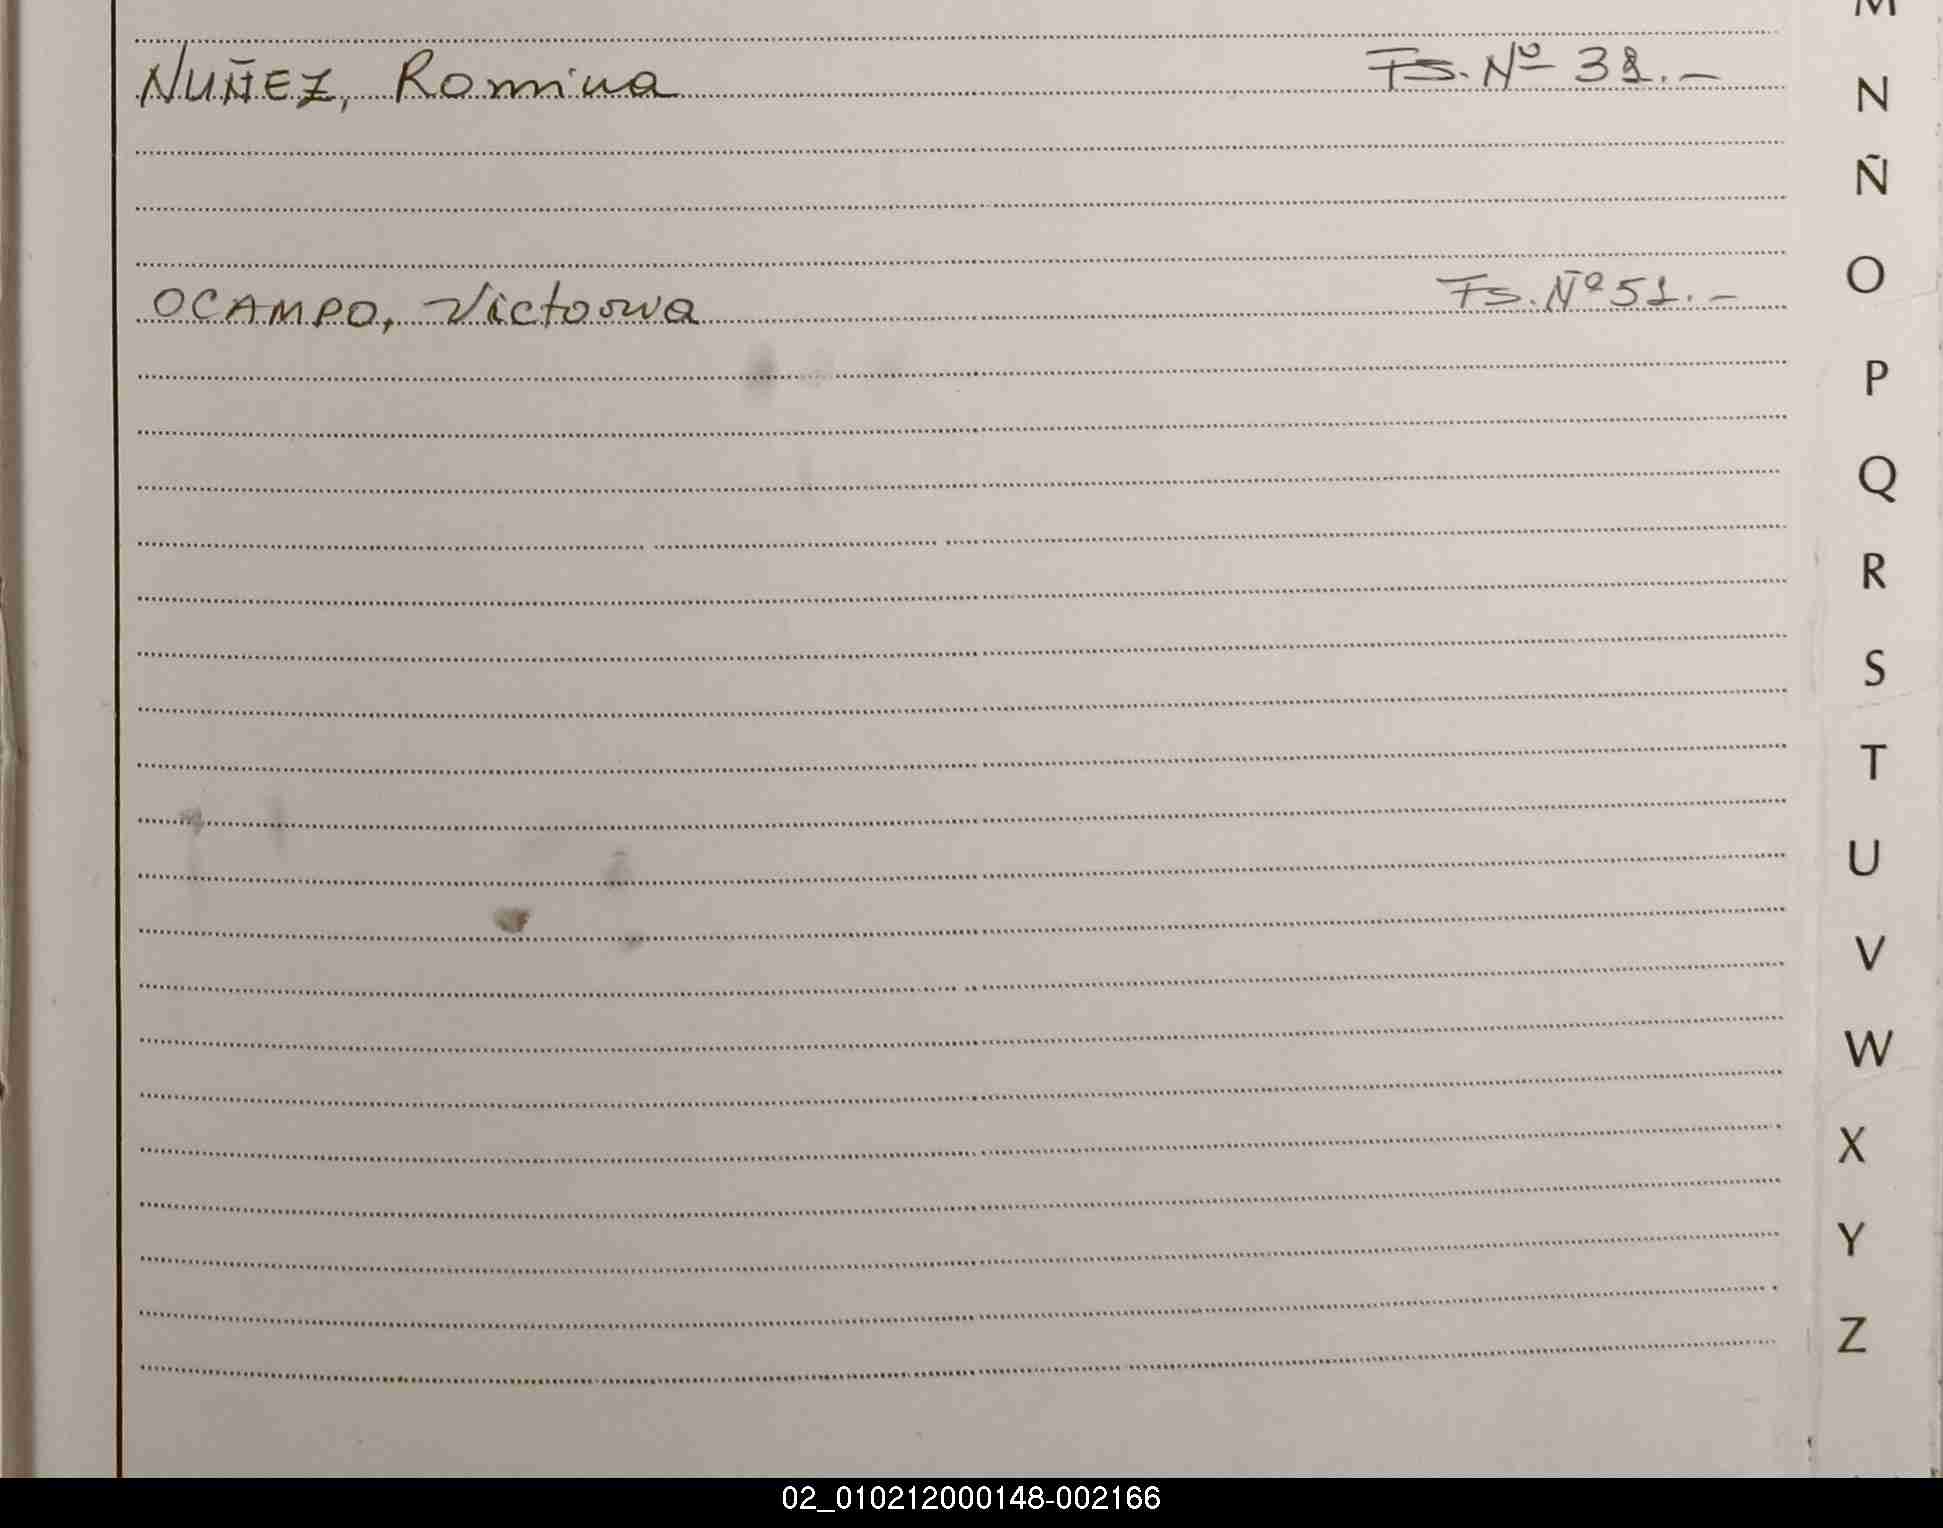 M
NUÑEZ, Romina Fs. Nº 38.-
N
Ñ
O
OCAMPO, Victoria Fs. Nº 51.-
P
Q
R
S
T
U
V
W
X
Y
Z
02_010212000148-002166